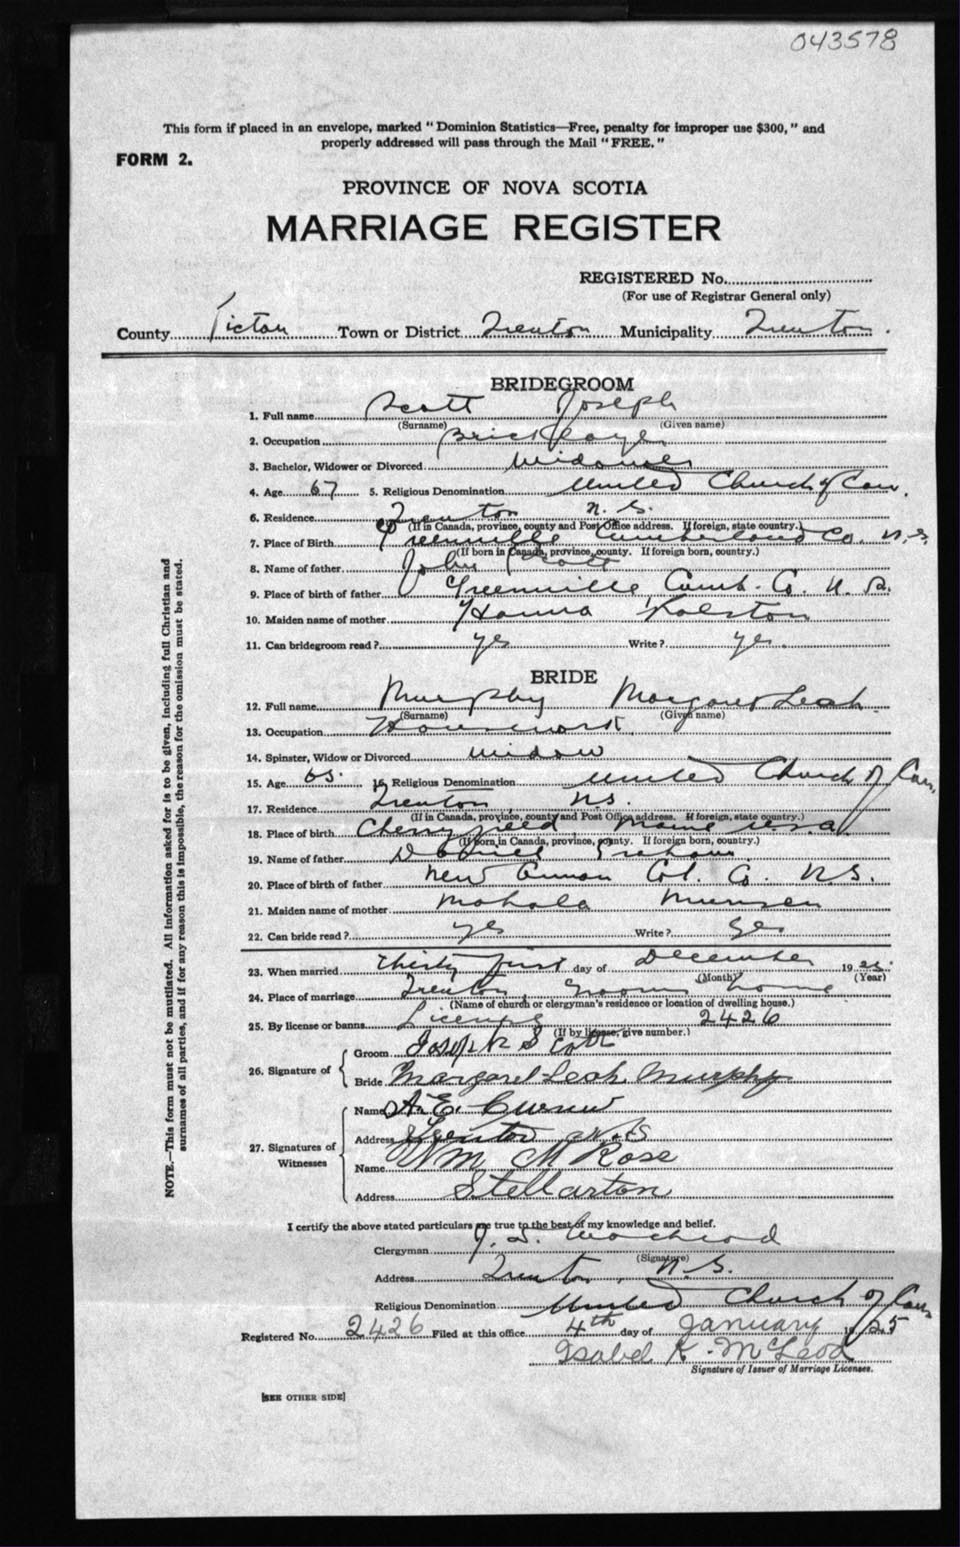 043578
This form if placed in an envelope, marked "Dominion Statistics—Free, penalty for improper use $300," and
properly addressed will pass through the Mail "FREE."
FORM 2.
PROVINCE OF NOVA SCOTIA
MARRIAGE REGISTER
REGISTERED No.
(For use of Registrar General only)
County Pictou Town or District Trenton Municipality Trenton.
BRIDEGROOM
1. Full name Scott Joseph
(Surname) (Given name)
2. Occupation Bricklayer
3. Bachelor, Widower or Divorced Widower
4. Age 67 5. Religious Denomination United Church of Can.
6. Residence Trenton N.S.
(If in Canada, province, county and Post Office address. If foreign, state country.)
7. Place of Birth Greenville Cumberland Co. N.S.
(If born in Canada, province, county. If foreign born, country.)
8. Name of father John Scott
9. Place of birth of father Greenville, Cumb. Co. N.S.
10. Maiden name of mother Hanna
11. Can bridegroom read? yes Write? yes.
BRIDE
12. Full name Murphy Margaret Leah
(Surname) (Given name)
13. Occupation Housework
14. Spinster, Widow or Divorced widow
15. Age 65. 16. Religious Denomination United Church of Can.
17. Residence Trenton N.S.
(If in Canada, province, county and Post Office address. If foreign, state country.)
18. Place of birth Cherryfield Maine U.S.A.
(If born in Canada, province, county. If foreign born, country.)
19. Name of father Daniel Graham
20. Place of birth of father New Annan Col. Co. N.S.
21. Maiden name of mother
22. Can bride read? yes Write? yes
23. When married thirty first day of December 19
(Month) (Year)
24. Place of marriage Trenton grooms home
(Name of church or clergyman's residence or location of dwelling house.)
25. By license or banns License 2426
(If by license, give number.)
26. Signature of Groom Joseph Scott
Bride Margaret Leah Murphy
27. Signatures of Witnesses
Name A. E.
Address Trenton N.S
Name Wm M Rose
Address Stellarton
I certify the above stated particulars are true to the best of my knowledge and belief.
Clergyman
(Signature)
Address Trenton, N.S.
Religious Denomination United Church of Can
Registered No. 2426 Filed at this office 4th day of January 1925
Isabel K. McLeod
Signature of Issuer of Marriage Licenses.
[SEE OTHER SIDE]
NOTE.—This form must not be mutilated. All information asked for is to be given, including full Christian and
surnames of all parties, and if for any reason this is impossible, the reason for the omission must be stated.